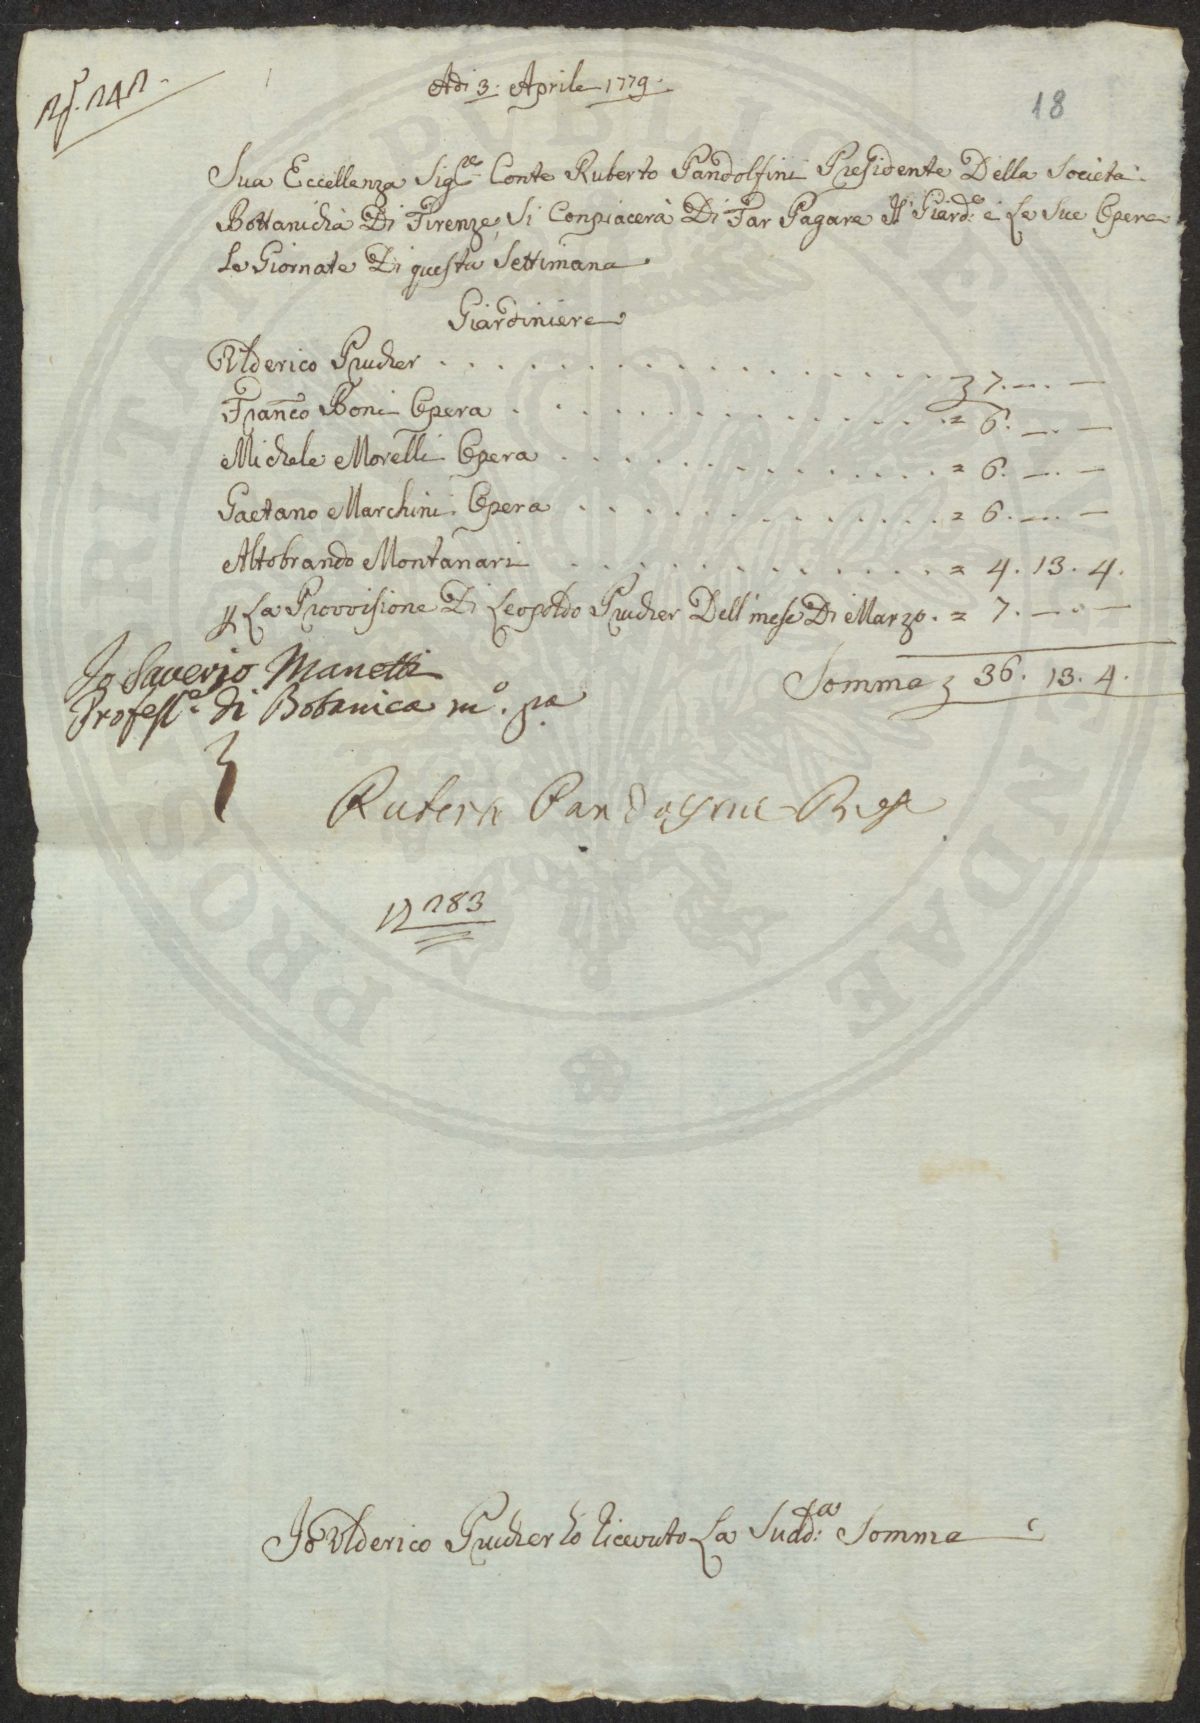 N. 242.
Adi 3. Aprile 1779.
18
Sua Eccellenza Sig.re Conte Ruberto Pandolfini Presidente Della Società
Bottanicha Di Firenze, Si Conpiacerà Di Far Pagare Il Giard.e e Le Sue Opere
Le Giornate Di questa Settimana
Giardiniere
Ulderico Prucher . . . . . . . . . . . . £ 7. —. —
Franco Boni Opera . . . . . . . . . . = 6. —. —
Michele Morelli Opera . . . . . . . . . = 6. —. —
Gaetano Marchini Opera . . . . . . . . = 6. —. —
Altobrando Montanari . . . . . . . . . = 4. 13. 4.
p La Provvisione Di Leopoldo Prucher Dell mese Di Marzo. = 7. —. —
Somma £ 36. 13. 4.
Io Saverio Manetti
Profess.e di Botanica m.o pa
Ruberto Pandolfini Pres
N 283
Io Ulderico Prucher ho ricevuto La Sudd.a Somma
PROSPERITATI PUBLICAE AUGENDAE